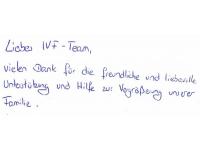 Liebes IVF-Team,
vielen Dank für die freundliche und liebevolle
Unterstützung und Hilfe zur Vergrößerung unserer
Familie.